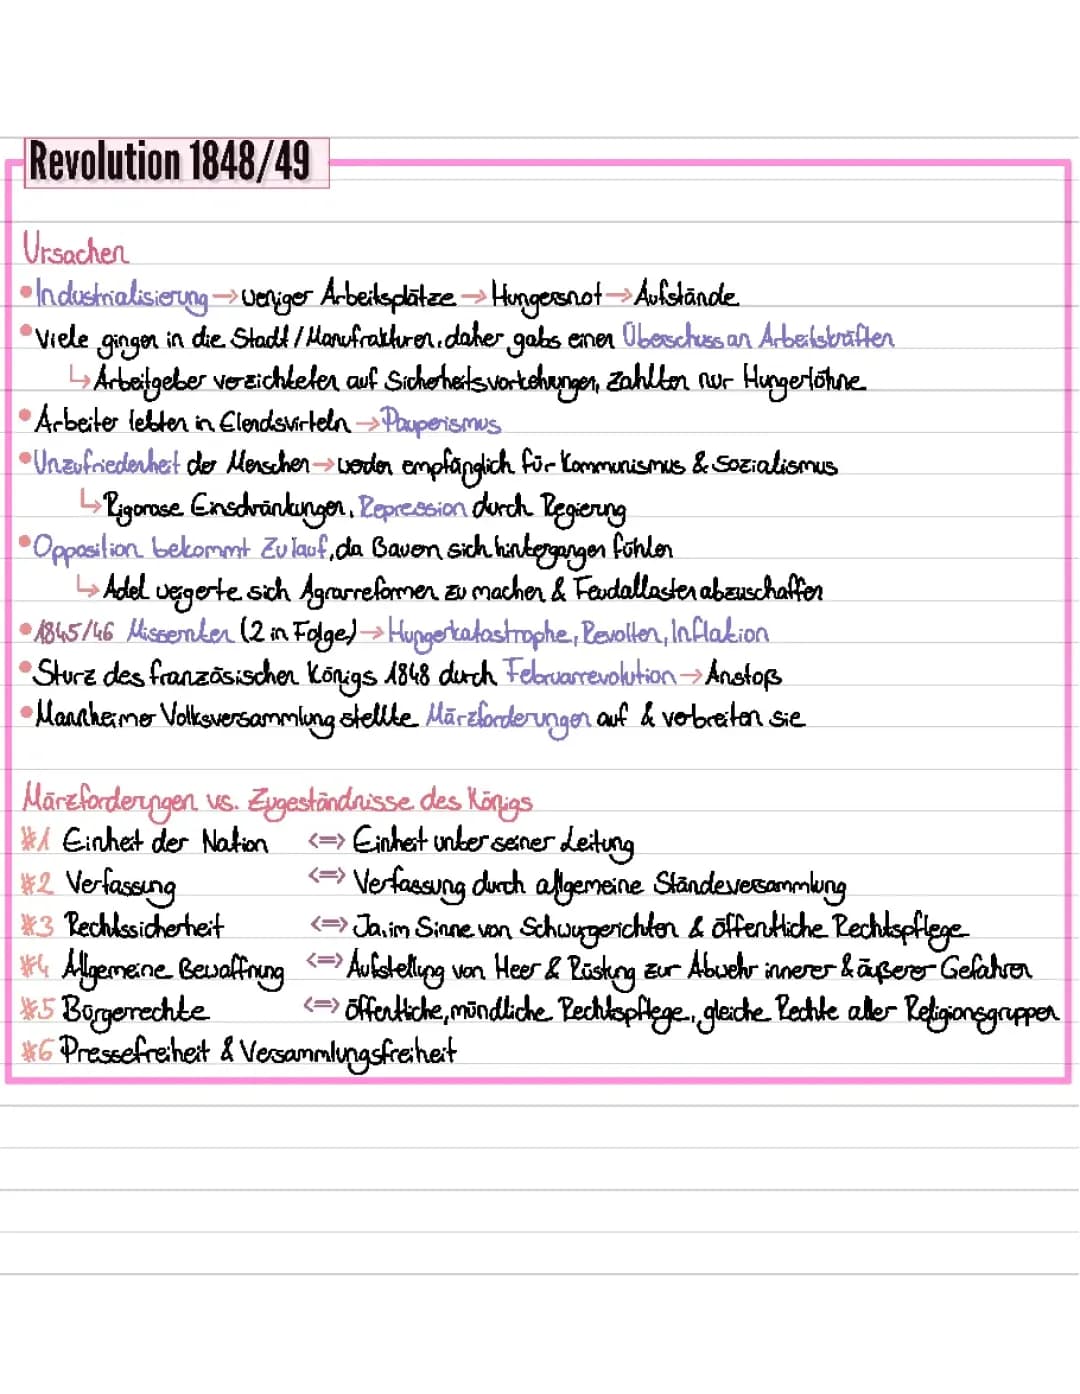 Revolution 1848/49
Ursachen
•Industrialisierung → weniger Arbeitsplätze → Hungersnot → Aufstände
•Viele gingen in die Stadt / Manufrakturen, daher gabs einen Überschuss an Arbeitskräften
↳ Arbeitgeber verzichteten auf Sicherheitsvorkehrungen, zahlten nur Hungerlöhne
•Arbeiter lebten in Elendsvirteln → Pauperismus
•Unzufriedenheit der Menschen → werden empfänglich für Kommunismus & Sozialismus
↳ Rigorose Einschränkungen, Repression durch Regierung
•Opposition bekommt Zulauf, da Bauern sich hintergangen fühlen
↳ Adel weigerte sich Agrarreformen zu machen & Feudallasten abzuschaffen
•1845/46 Missernten (2 in Folge) → Hungerkatastrophe, Revolten, Inflation
•Sturz des französischen Königs 1848 durch Februarrevolution → Anstoß
•Mannheimer Volksversammlung stellte Märzforderungen auf & verbreiten sie
Märzforderyngen vs. Zugeständnisse des Königs
#1 Einheit der Nation <=> Einheit unter seiner Leitung
#2 Verfassung <=> Verfassung durch allgemeine Ständeversammlung
#3 Rechtssicherheit <=> Ja, im Sinne von Schwurgerichten & öffentliche Rechtspflege
#4 Allgemeine Bewaffnung <=> Aufstellung von Heer & Rüstung zur Abwehr innerer & äußerer Gefahren
#5 Bürgerrechte <=> öffentliche, mündliche Rechtspflege, gleiche Rechte aller Religionsgruppen
#6 Pressefreiheit & Versammlungsfreiheit